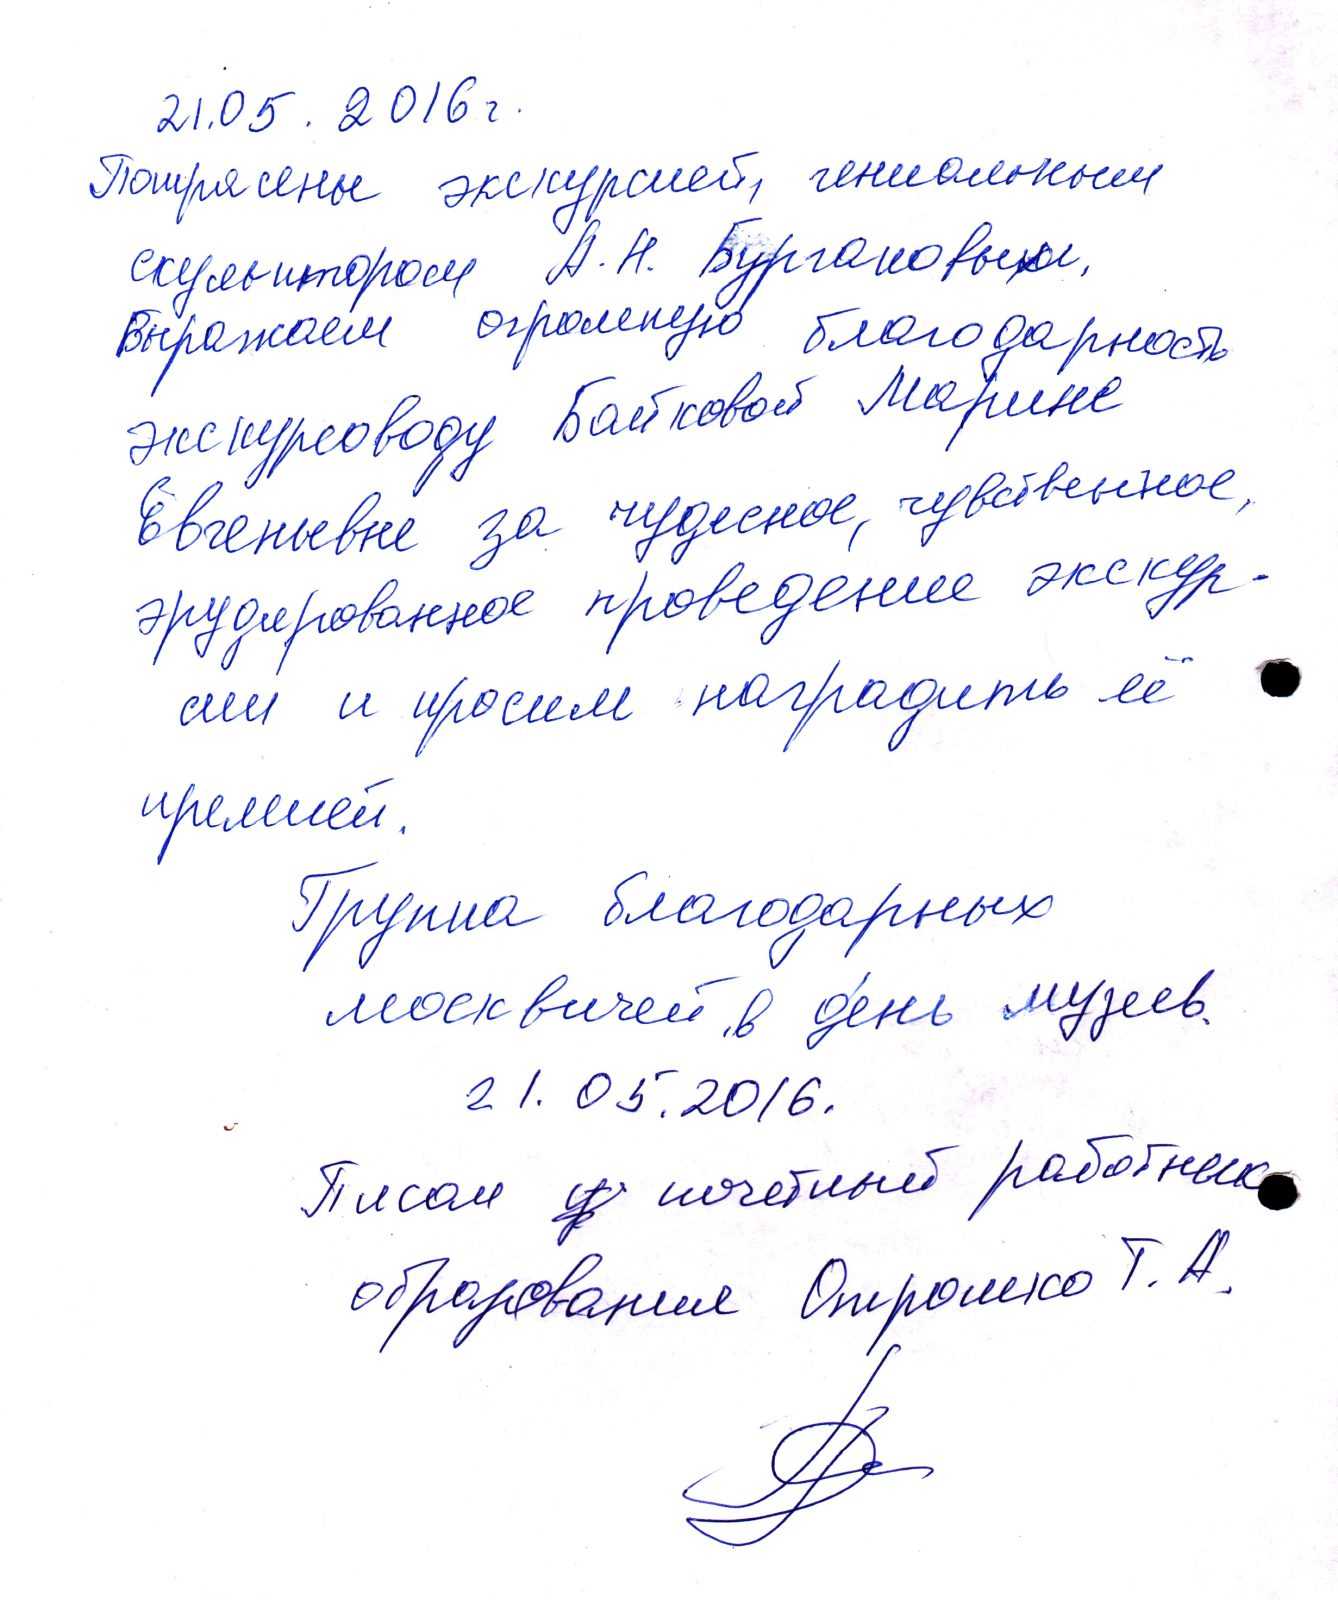 21.05.2016 г.
Потрясены экскурсией, гениальным
скульптором А.Н. Бургановым.
Выражаем огромную благодарность
экскурсоводу Байковой Марине
Евгеньевне за чудесное, чувственное,
эрудированное проведение экскур-
сии и просим наградить её
премией.
Группа благодарных
москвичей, в день музеев.
21.05.2016.
Писал почетный работник
образования Т.А.